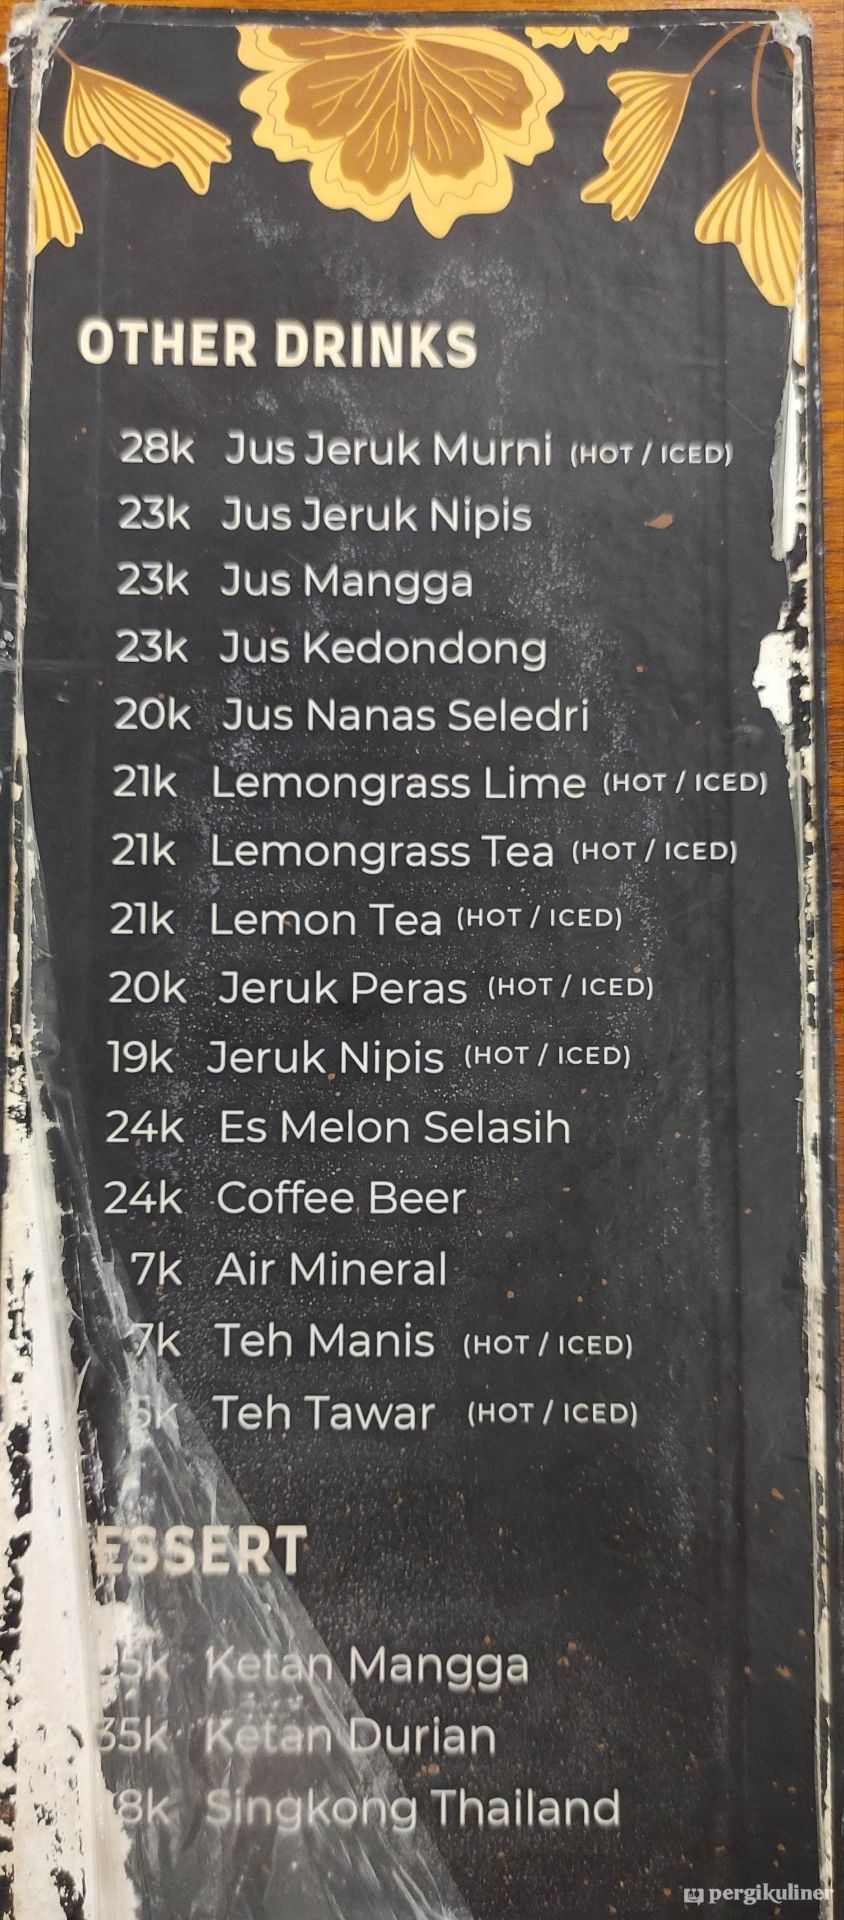 OTHER DRINKS
28k Jus Jeruk Murni (HOT / ICED)
23k Jus Jeruk Nipis
23k Jus Mangga
23k Jus Kedondong
20k Jus Nanas Seledri
21k Lemongrass Lime (HOT / ICED)
21k Lemongrass Tea (HOT / ICED)
21k Lemon Tea (HOT / ICED)
20k Jeruk Peras (HOT / ICED)
19k Jeruk Nipis (HOT / ICED)
24k Es Melon Selasih
24k Coffee Beer
7k Air Mineral
7k Teh Manis (HOT / ICED)
5k Teh Tawar (HOT / ICED)
ESSERT
Ketan Mangga
35k Ketan Durian
Singkong Thailand
pergikuliner